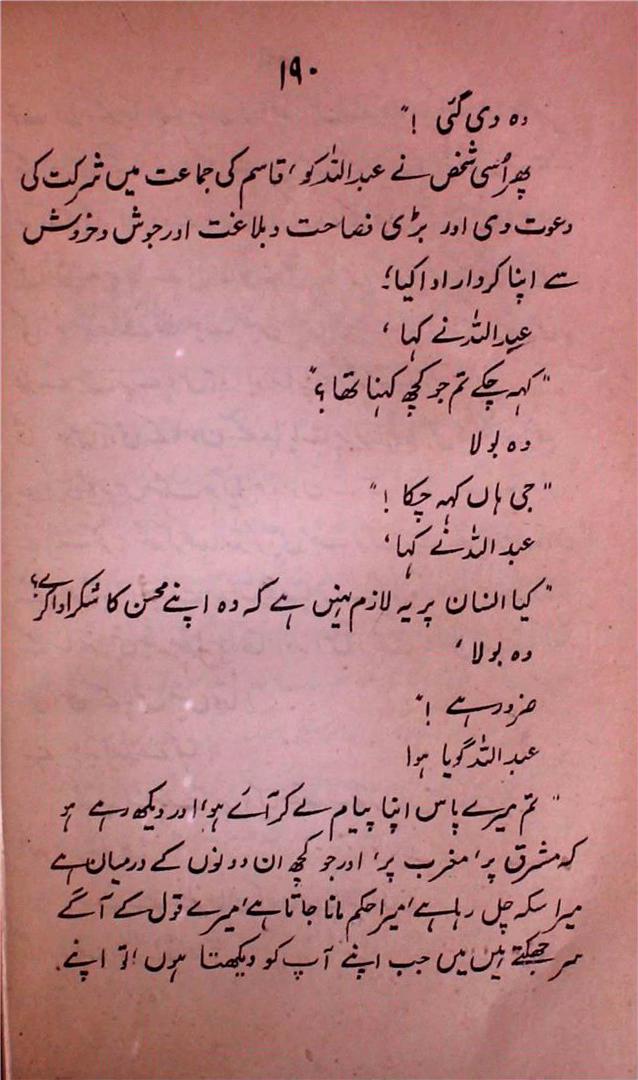 ۱۹۰
وہ دی گئی !"
پھر اُسی شخص نے عبداللہ کو ' قاسم کی جماعت میں شرکت کی
دعوت دی اور بڑی فصاحت و بلاغت اور جوش و خروش
سے اپنا کردار ادا کیا ؛
عبداللہ نے کہا '
"کہہ چکے تم جو کچھ کہنا تھا ؟"
وہ بولا
"جی ہاں کہہ چکا !"
عبداللہ نے کہا '
"کیا انسان پر یہ لازم نہیں ہے کہ وہ اپنے محسن کا شکر ادا کرے ؟
وہ بولا '
ضرور ہے !"
عبداللہ گویا ہوا
"تم میرے پاس اپنا پیام لے کر آئے ہو ' اور دیکھ رہے ہو
کہ مشرق پر ' مغرب پر ' اور جو کچھ ان دونوں کے درمیان ہے
میرا سکہ چل رہا ہے ' میرا حکم مانا جاتا ہے ' میرے قول کے آگے
سر جھکتے ہیں میں جب اپنے آپ کو دیکھتا ہوں ! تو اپنے